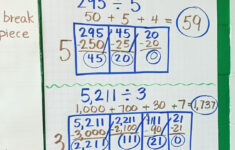 break
piece
295 ÷ 5
50 + 5 + 4 = 59
5
295 45 20
-250 -25 -20
45 20 0
5,211 ÷ 3
1,000 + 700 + 30 + 7 = 1,737
3
5,211 2,211 111 21
-3,000 -2,100 -90 -21
2,211 111 21 0